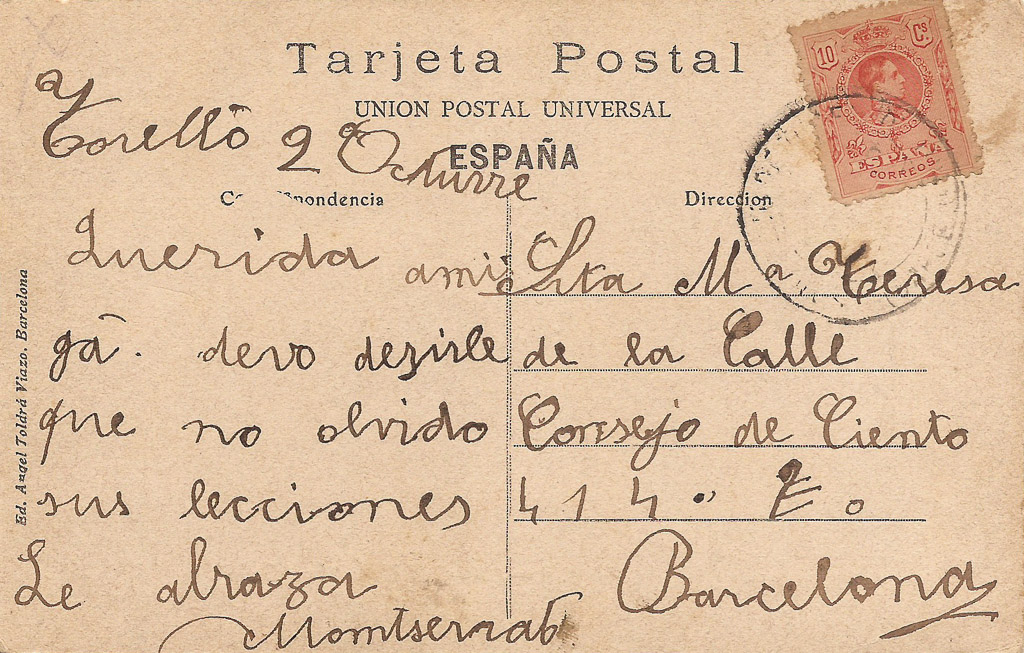 Tarjeta Postal
UNION POSTAL UNIVERSAL
ESPAÑA
Correspondencia
Direccion
10 Cs.
ESPAÑA
CORREOS
Torelló 2 Octurre
Querida ami
gá. devo dezirle
que no olvido
sus lecciones
Le abraza
Montserrat
Srta Mª Teresa
de la Calle
Consejo de Ciento
414. 2º
Barcelona
Ed. Angel Toldrá Viazo. Barcelona